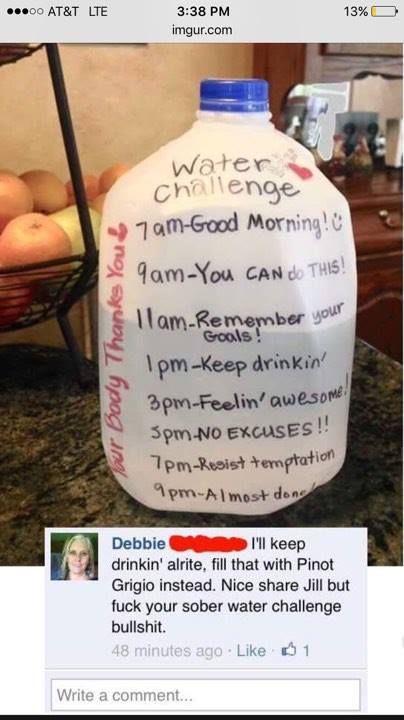 AT&T LTE 3:38 PM 13%
imgur.com
Water
Challenge
7am-Good Morning!
9am-You CAN do THIS!
11am-Remember your
Goals!
1pm-Keep drinkin'
3pm-Feelin' awesome!
5pm-NO EXCUSES!!
7pm-Resist temptation
9pm-Almost done!
Your Body Thanks You
Debbie I'll keep
drinkin' alrite, fill that with Pinot
Grigio instead. Nice share Jill but
fuck your sober water challenge
bullshit.
48 minutes ago · Like · 1
Write a comment...